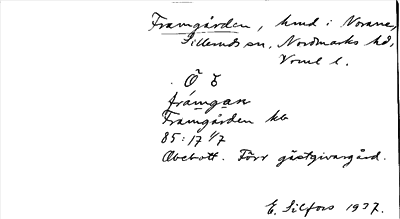 Framgården, hmd i Norane,
Sillerud sn, Nordmarks hd,
Vrml l.
Ö
framgan
Framgården kb
85:17 1/7
Obebott. Förr gästgivargård.
E. Silfors 1937.